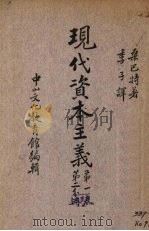 桑巴特著
季子譯
現代資本主義
第一
第二
中山文化教育館編輯